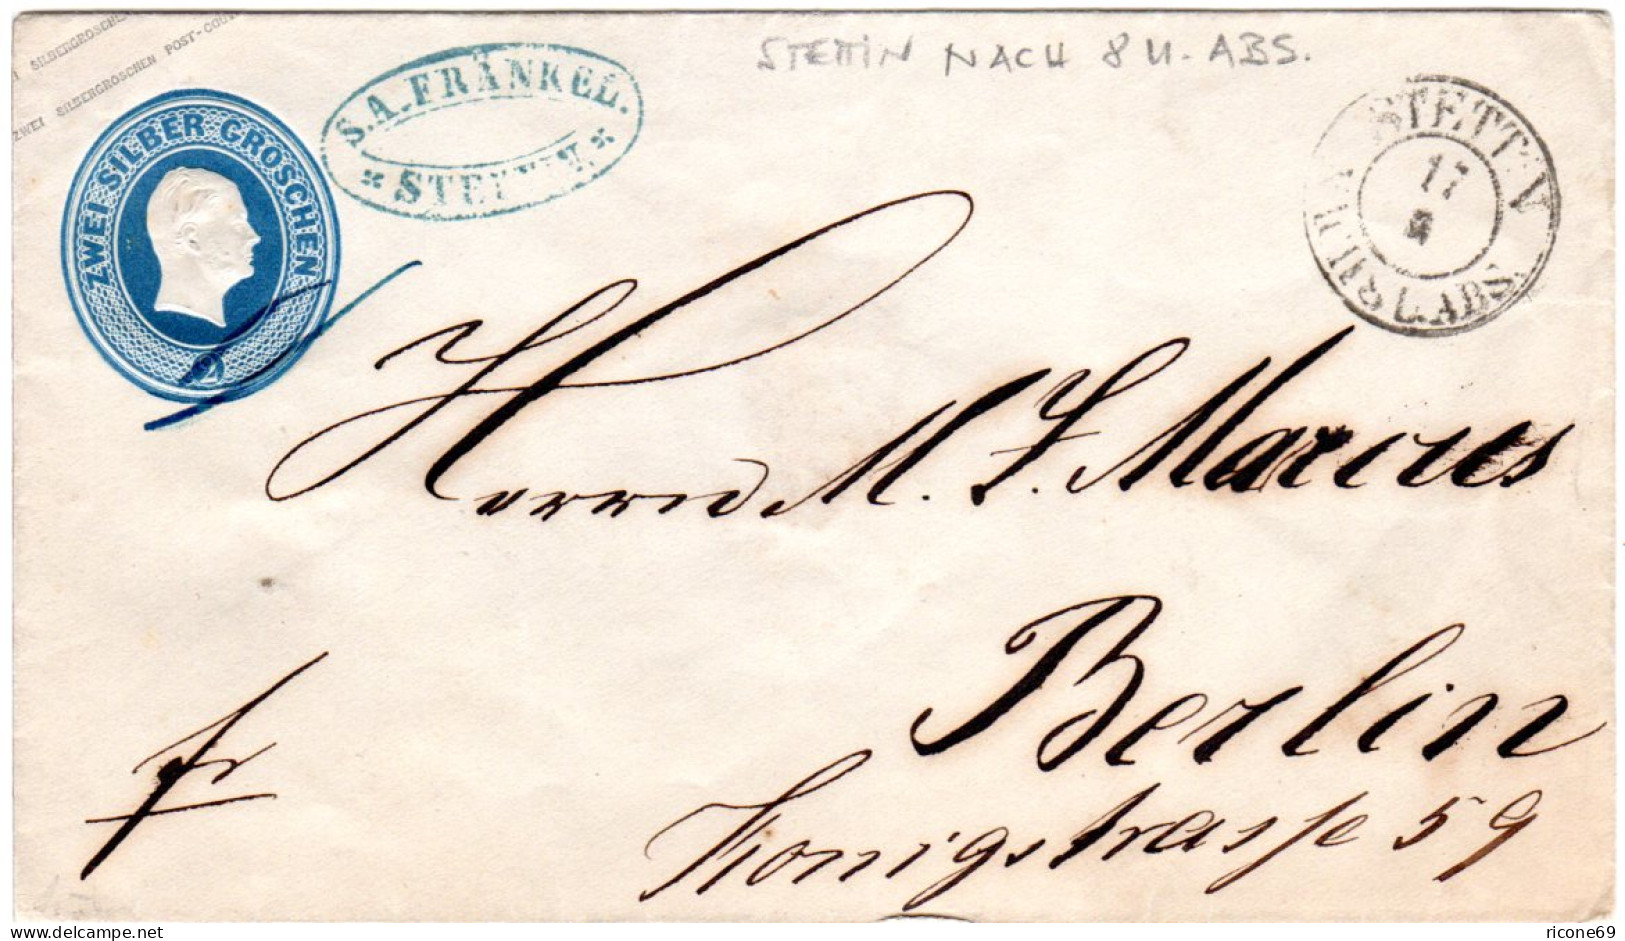 SILBERGROSCHEN
ZWEI SILBERGROSCHEN POST-COUV
ZWEI SILBER GROSCHEN
2
S.A.FRÄNKEL.
STETTIN.
STETTIN NACH 8 U. ABS.
STETTIN
17
8 U. ABS.
Herrn M. J. Marcus
Berlin
fr
Konigstrasse 59
delcampe.net
ricone69